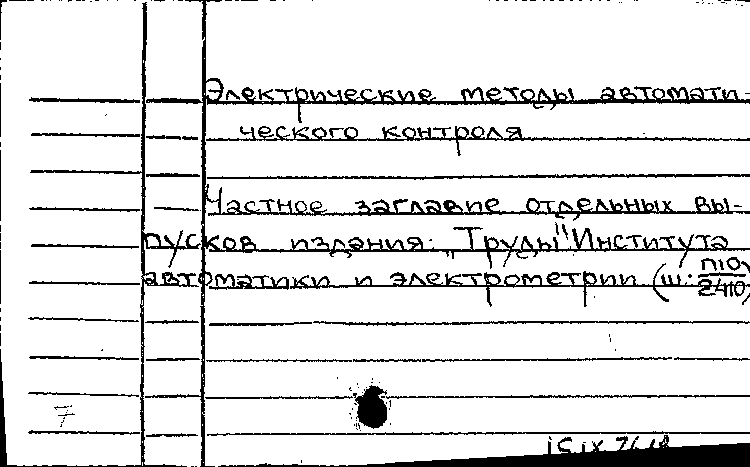 Электрические методы автомати-
ческого контроля
Частное заглавие отдельных вы-
пусков издания: „Труды" Института
автоматики и электрометрии (ш: П10/2410)
7